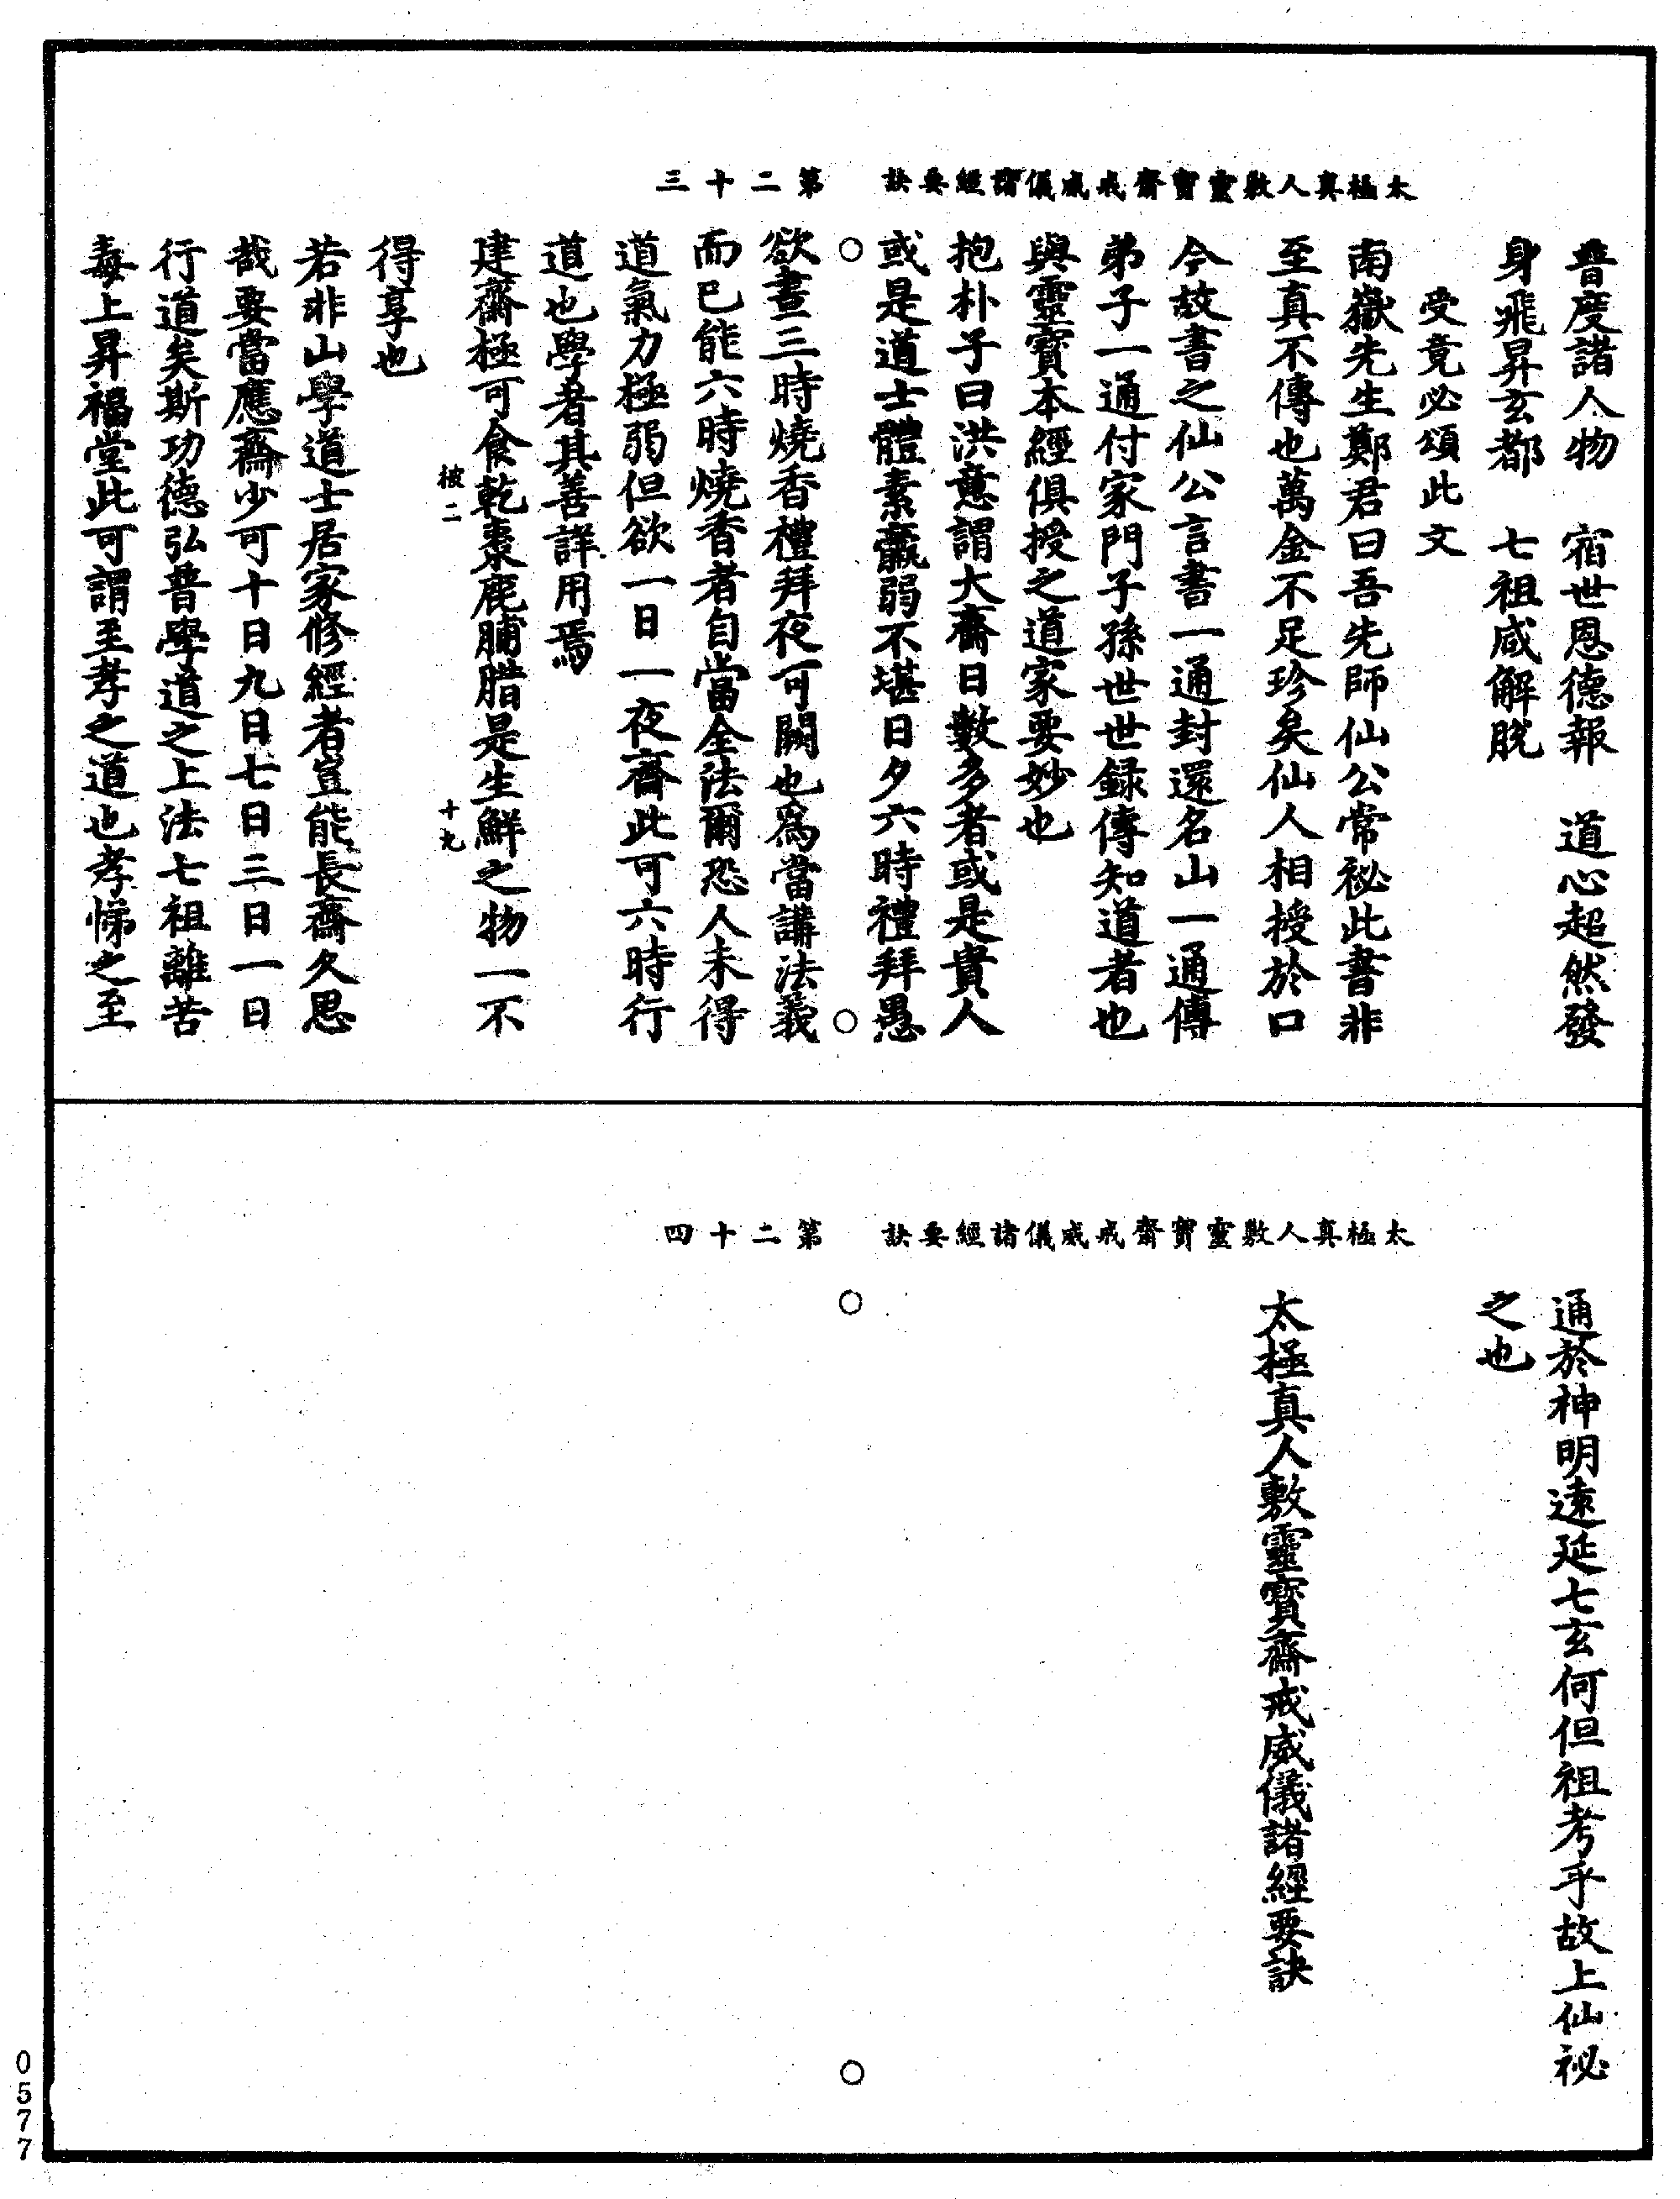 太極真人敷靈寶齋戒威儀諸經要訣　第二十三
普度諸人物　宿世恩德報　道心超然發
身飛昇玄都　七祖咸解脫
受竟必頌此文
南嶽先生鄭君曰吾先師仙公常祕此書非
至真不傳也萬金不足珍矣仙人相授於口
今故書之仙公言書一通封還名山一通傳
弟子一通付家門子孫世世録傳知道者也
與靈寶本經俱授之道家要妙也
抱朴子曰洪意謂大齋日數多者或是貴人
或是道士體素羸弱不堪日夕六時禮拜愚
欲晝三時燒香禮拜夜可闕也爲當講法義
而已能六時燒香者自當全法爾恐人未得
道氣力極弱但欲一日一夜齋此可六時行
道也學者其善詳用焉
建齋極可食乾棗鹿脯腊是生鮮之物一不
被二　十九
得享也
若非山學道士居家修經者豈能長齋久思
哉要當應齋少可十日九日七日三日一日
行道矣斯功德弘普學道之上法七祖離苦
毒上昇福堂此可謂至孝之道也孝悌之至
太極真人敷靈寶齋戒威儀諸經要訣　第二十四
通於神明遠延七玄何但祖考乎故上仙祕
之也
太極真人敷靈寶齋戒威儀諸經要訣
0577